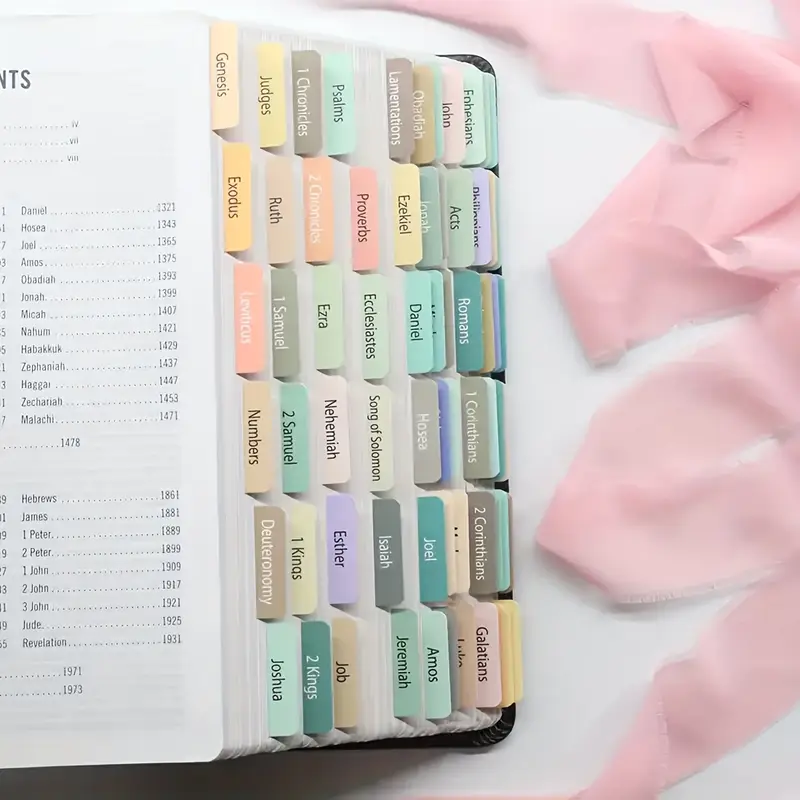 NTS
iv
vii
viii
Daniel 1321
Hosea 1343
Joel 1365
Amos 1375
Obadiah 1393
Jonah 1399
Micah 1407
Nahum 1421
Habakkuk 1429
Zephaniah 1437
Haggai 1447
Zechariah 1453
Malachi 1471
1478
Hebrews 1861
James 1881
1 Peter 1889
2 Peter 1899
1 John 1909
2 John 1917
3 John 1921
Jude 1925
Revelation 1931
1971
1973
Genesis
Exodus
Leviticus
Numbers
Deuteronomy
Joshua
Judges
Ruth
1 Samuel
2 Samuel
1 Kings
2 Kings
1 Chronicles
2 Chronicles
Ezra
Nehemiah
Esther
Job
Psalms
Proverbs
Ecclesiastes
Song of Solomon
Isaiah
Jeremiah
Lamentations
Ezekiel
Daniel
Hosea
Joel
Amos
Obadiah
Jonah
Luke
John
Acts
Romans
1 Corinthians
2 Corinthians
Galatians
Ephesians
Philippians